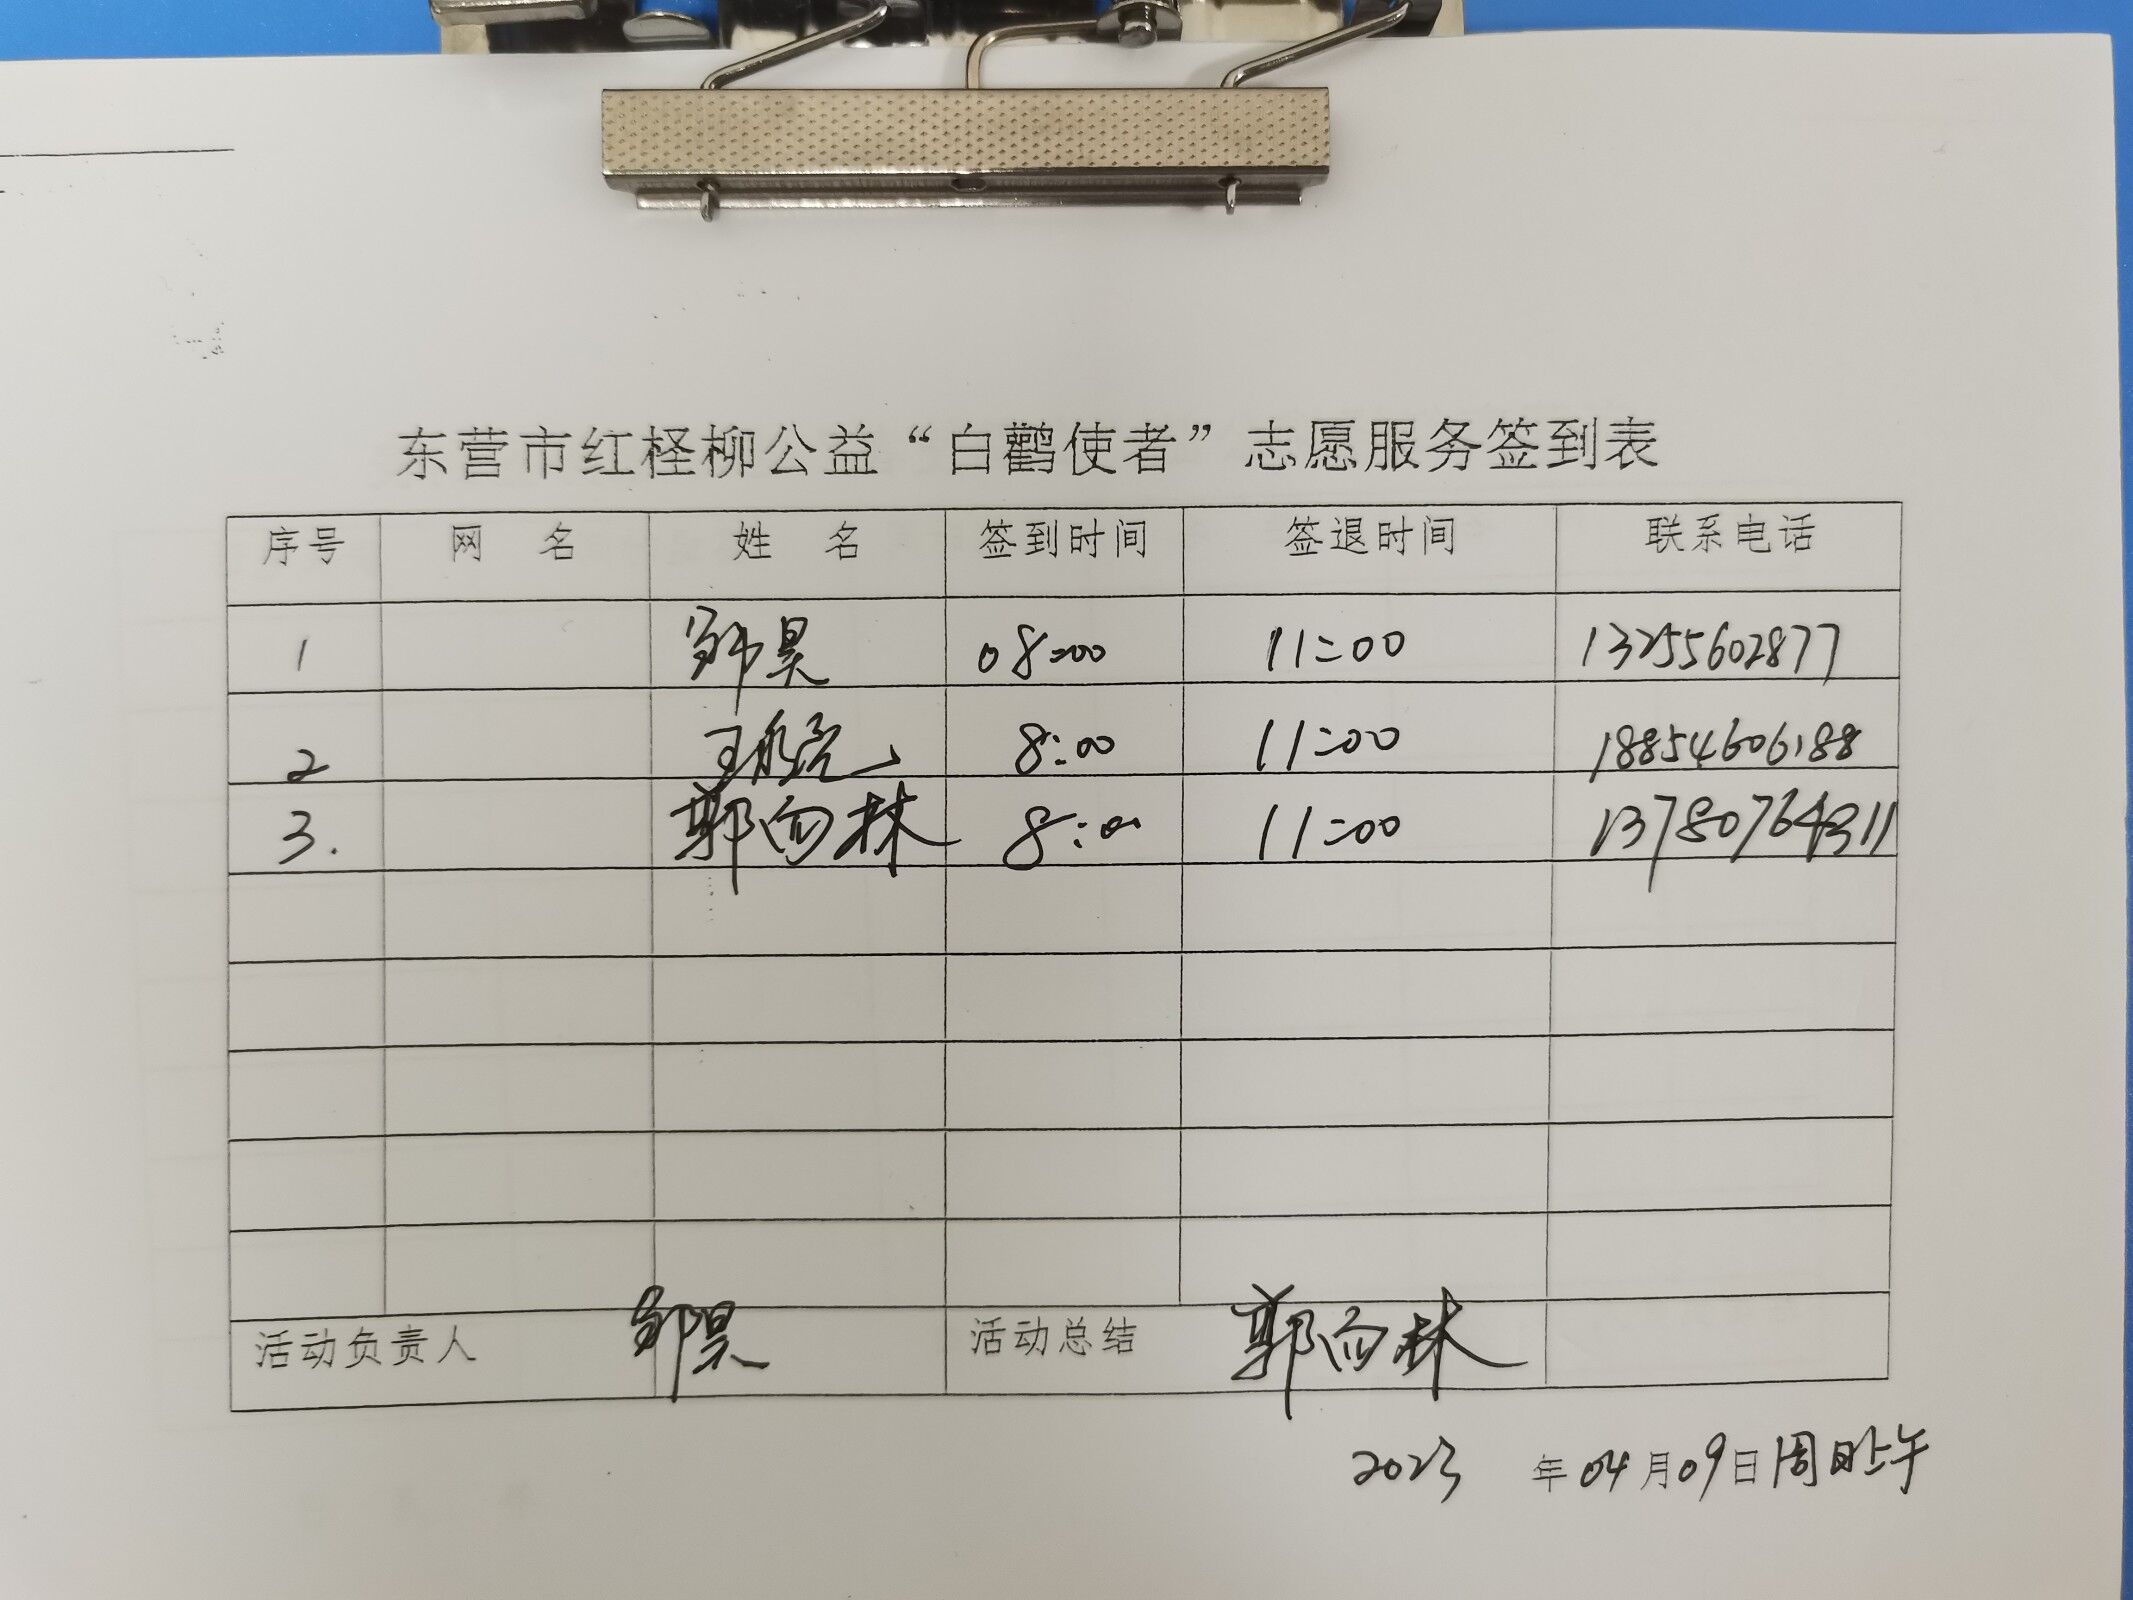 东营市红柽柳公益“白鹳使者”志愿服务签到表
序号 网 名 姓 名 签到时间 签退时间 联系电话
1 邹昊 08:00 11:00 13255602877
2 8:00 11:00 18854606188
3. 郭向林 8:00 11:00 13780764311
活动负责人 邹昊 活动总结 郭向林
2023 年 04 月 09 日 周日上午